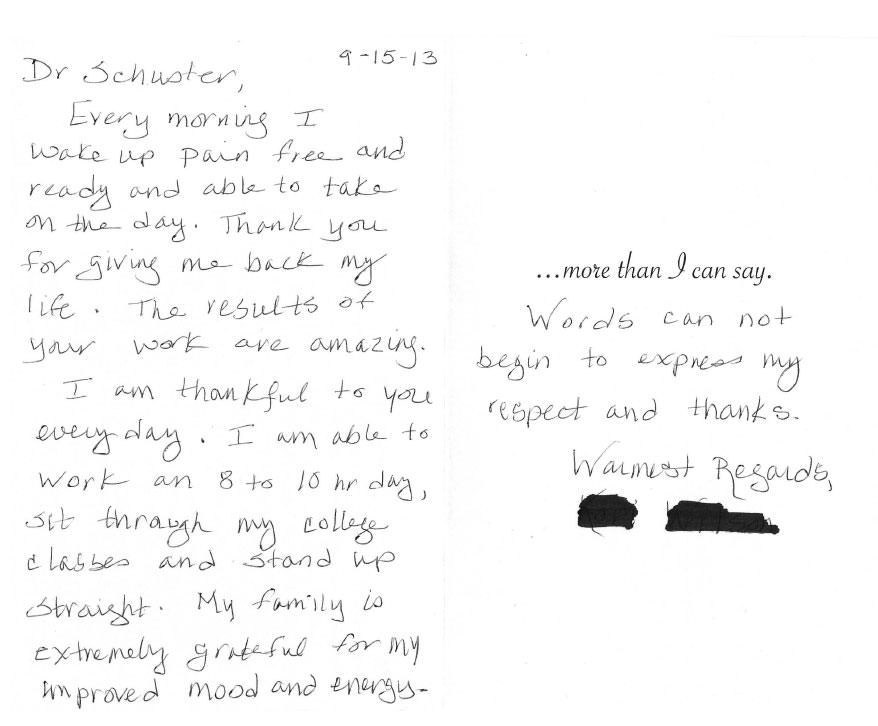 9-15-13
Dr Schuster,
Every morning I
wake up pain free and
ready and able to take
on the day. Thank you
for giving me back my
life. The results of
your work are amazing.
I am thankful to you
every day. I am able to
work an 8 to 10 hr day,
sit through my college
classes and stand up
straight. My family is
extremely grateful for my
improved mood and energy-
...more than I can say.
Words can not
begin to express my
respect and thanks.
Warmest Regards,